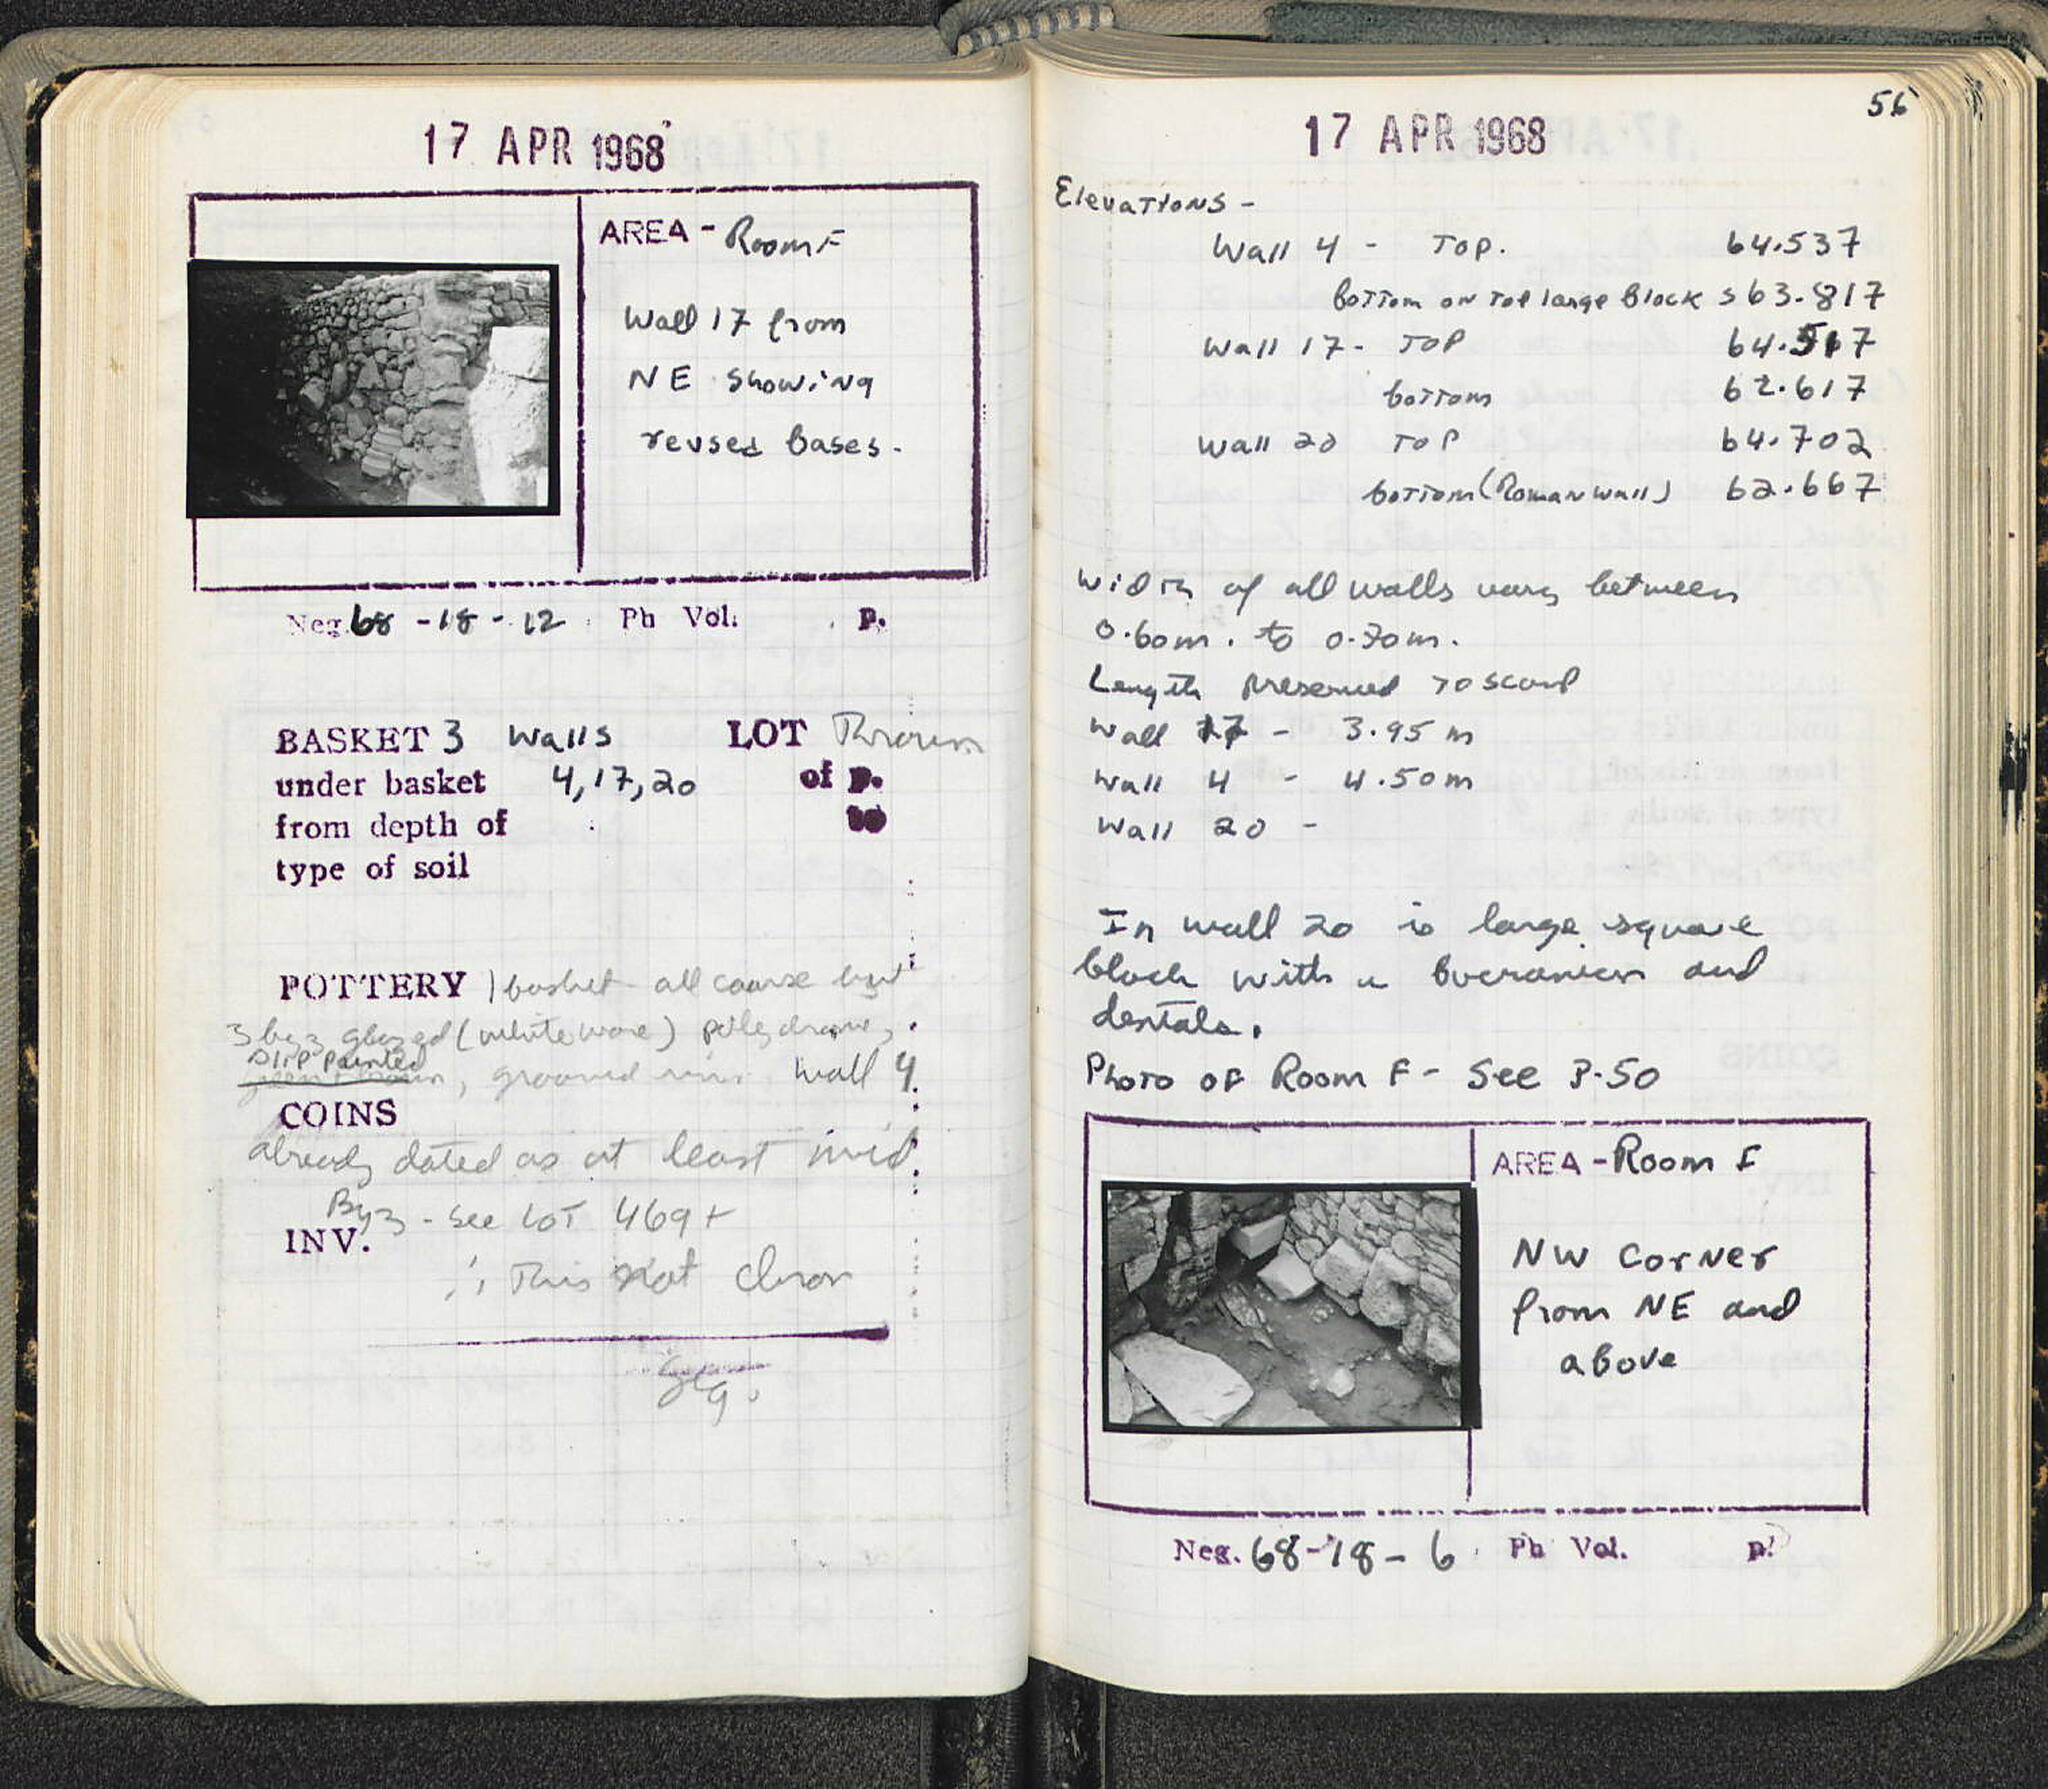 17 APR 1968
AREA - Room F
Wall 17 from
NE showing
reused bases.
Neg. 68 - 18 - 12 Ph Vol. p.
BASKET 3 Walls LOT Thrown
under basket 4, 17, 20 of p.
from depth of to
type of soil
POTTERY 1 basket - all coarse but
3 byz glazed (white ware) polychrome,
slip painted
, grooved rim. Wall 4
COINS
already dated as at least mid
Byz - see LOT 469+
INV.
∴ This Not Chron
56
17 APR 1968
Elevations -
Wall 4 - Top. 64.537
bottom on top large blocks 63.817
Wall 17 - Top 64.517
bottom 62.617
Wall 20 Top 64.702
bottom (Roman wall) 62.667
Width of all walls vary between
0.60m. to 0.70m.
Length preserved to scarp
Wall 17 - 3.95 m
Wall 4 - 4.50 m
Wall 20 -
In wall 20 is large square
block with a bucranion and
dentals.
Photo of Room F - See P. 50
AREA - Room F
NW Corner
from NE and
above
Neg. 68-18-6 Ph Vol. p.